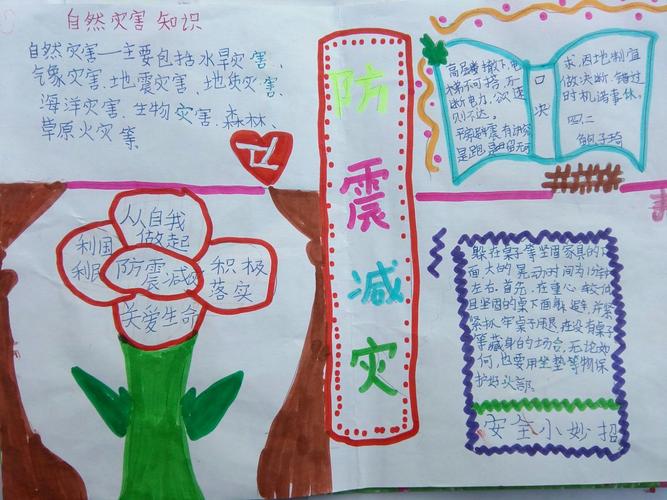 自然灾害知识
自然灾害——主要包括水旱灾害、
气象灾害、地震灾害、地质灾害、
海洋灾害、生物灾害、森林、
草原火灾等
从自我
做起
利国
利民
防震减灾
积极
落实
关爱生命
防震减灾
高层楼撤下,电
梯不可搭,万
断电力,欲速
则不达。
平房避震有讲究
是跑是留
口决
求,因地制宜
做决断,错过
时机诸事休。
四二
鲍子琦
躲在桌子等坚固家具的下
面大的晃动时间为1分钟
左右.首先,在重心较低
且坚固的桌下面躲避,并紧
紧抓牢桌子腿.在没有桌子
等藏身的场合,无论如
何,也要用坐垫等物保
护好头部.
安全小妙招